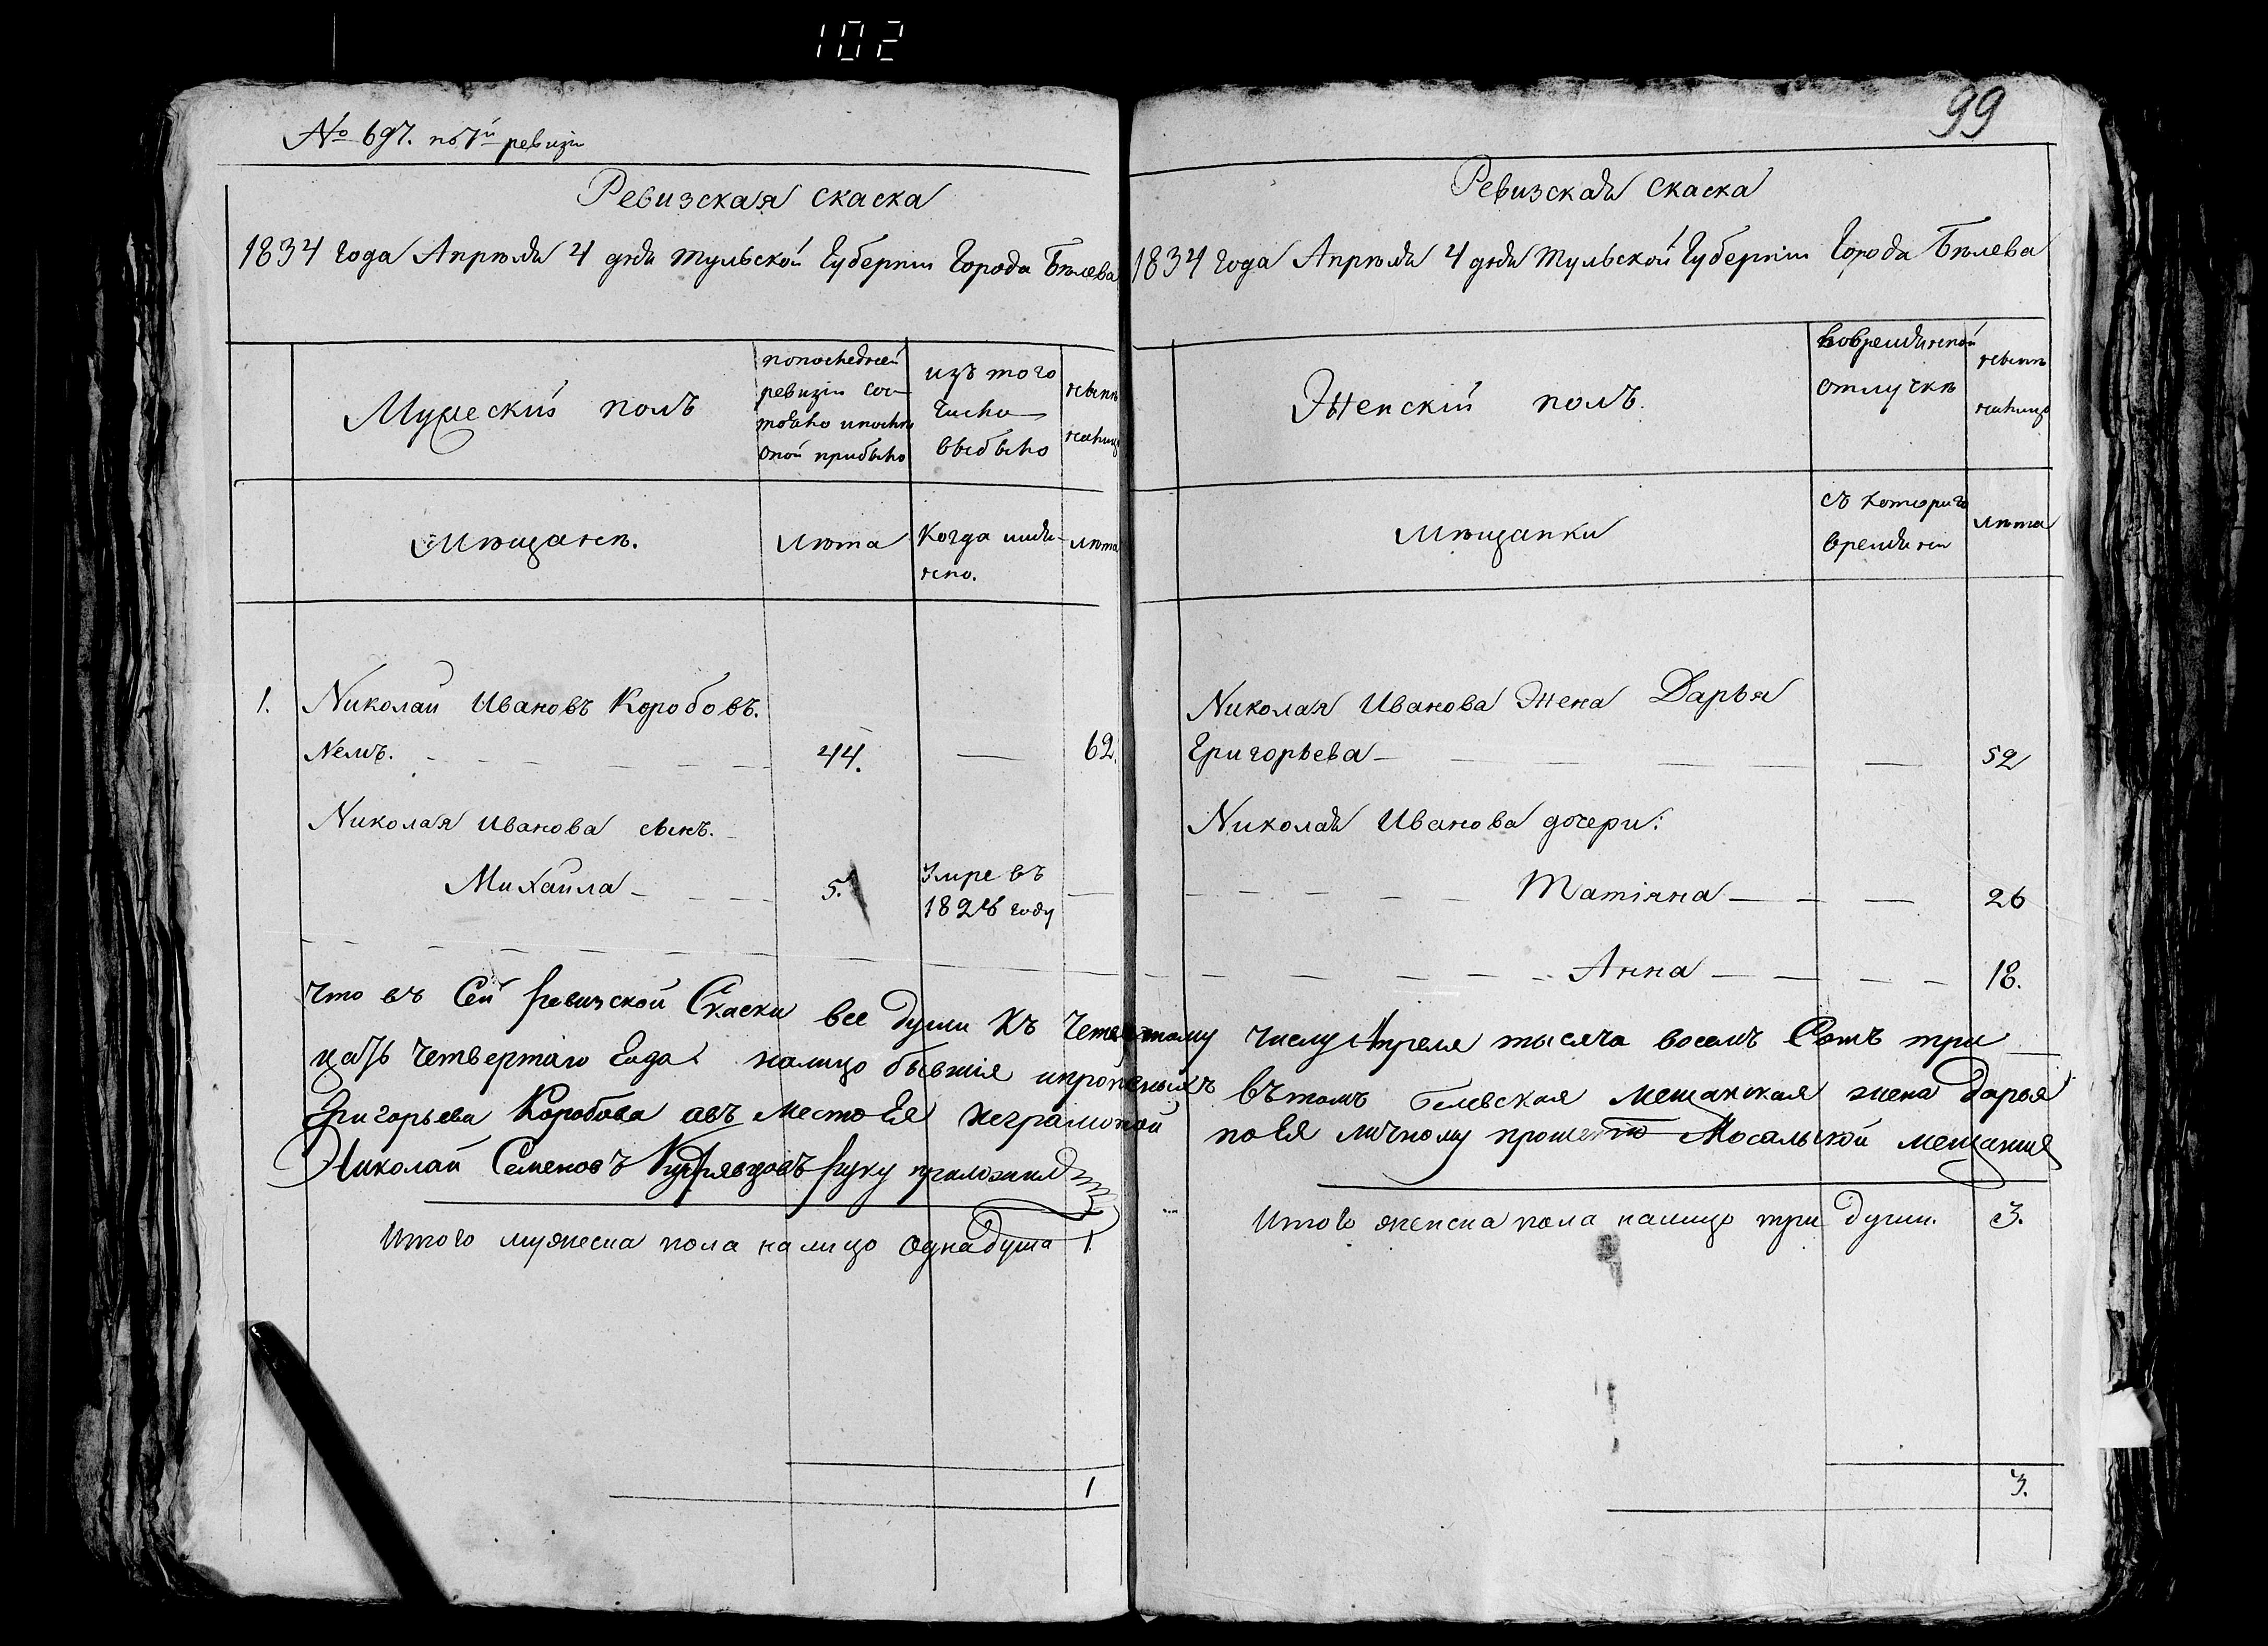 102
№ 697. по 7й ревизіи
Ревизская скаска
1834 года Апрѣля 4 дня Тульской Губерніи Города Бѣлева
Мужескій полъ
попоследней
ревизіи сос-
тояло ипосле
оной прибыло
изъ того
числа
выбыло
ныне
налицо
Мѣщане.
Лѣта
Когда имян-
но.
лѣта
1. Николаи Ивановъ Коробовъ.
Немъ. 44. — 62.
Николая Иванова сынъ.
Михаила 5. Умре въ
1826 году
99
Ревизская скаска
1834 года Апрѣля 4 дня Тульской Губерніи Города Бѣлева
Женскій полъ.
вовременной
отлучке
ныне
налицо
Мѣщанки
съ котораго
времени
лѣта
Николая Иванова Жена Дарья
Григорьева — 52
Николая Иванова дочери:
Татіяна — 26
Анна — 18.
Что въ Сей ревизской Скаски все души къ четвертому числу Апреля тысяча восемъ Сотъ три
цать четвертаго Года налицо бывшія ипрописныхъ вътомъ белевская мещанская жена Дарья
Григорьева Коробова авъ место Ея неграмотной по Ея личному прошенію Мосальской мещанинъ
Николай Семеновъ Кудрявцовъ руку приложилъ
Итого мужеска пола налицо одна душа 1
Итого женска пола налицо три души. 3.
1
3.